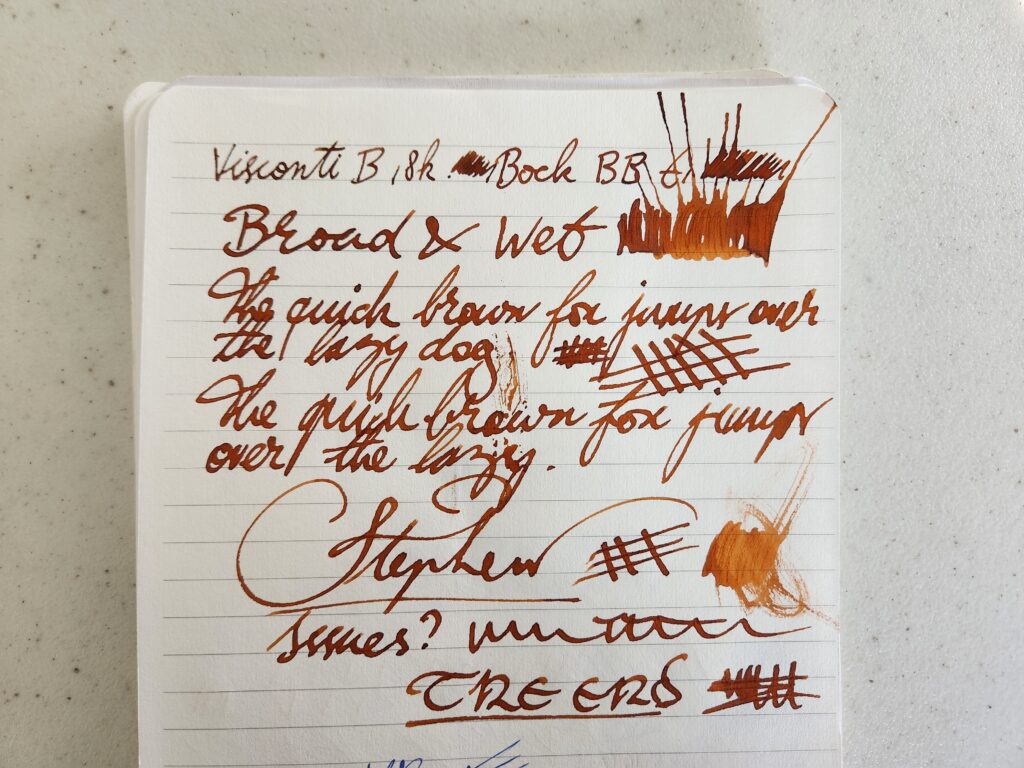 Visconti B 18k Bock BB
Broad & Wet
The quick brown fox jumps over
the lazy dog
The quick brown fox jumps
over the lazy.
Stephen
Issues?
THE END